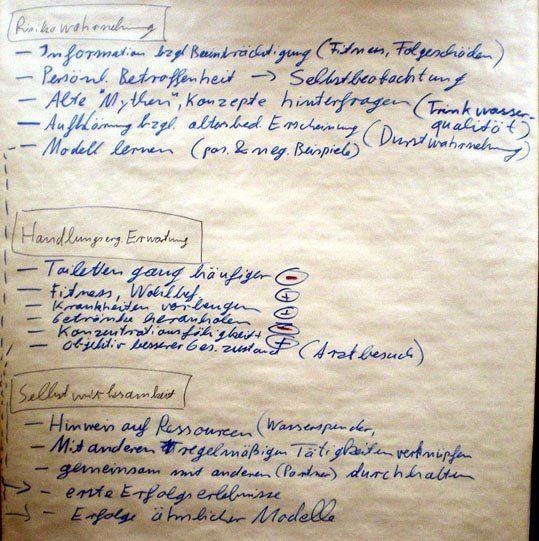 Risikowahrnehmung
— Information bzgl Beeinträchtigung (Fitness, Folgeschäden)
— Persönl. Betroffenheit → Selbstbeobachtung
— Alte "Mythen", Konzepte hinterfragen (Trinkwasser-
qualität)
— Aufklärung bzgl. altersbed. Erscheinung (Durstwahrnehmung)
— Modell lernen (pos. & neg. Beispiele)
Handlungserg. Erwartung
— Toiletten gang häufiger ⊖
— Fitness, Wohlbef. ⊕
— Krankheiten vorbeugen ⊕
— Getränke heranholen ⊖
— Konzentrationsfähigkeit ⊕
— Objektiv besserer Ges. zustand (Arztbesuch)
Selbstwirksamkeit
— Hinweis auf Ressourcen (Wasserspender,
— Mit anderen regelmäßigen Tätigkeiten verknüpfen
— gemeinsam mit anderen (Partner) durchhalten
→ — erste Erfolgserlebnisse
→ — Erfolge ähnlicher Modelle